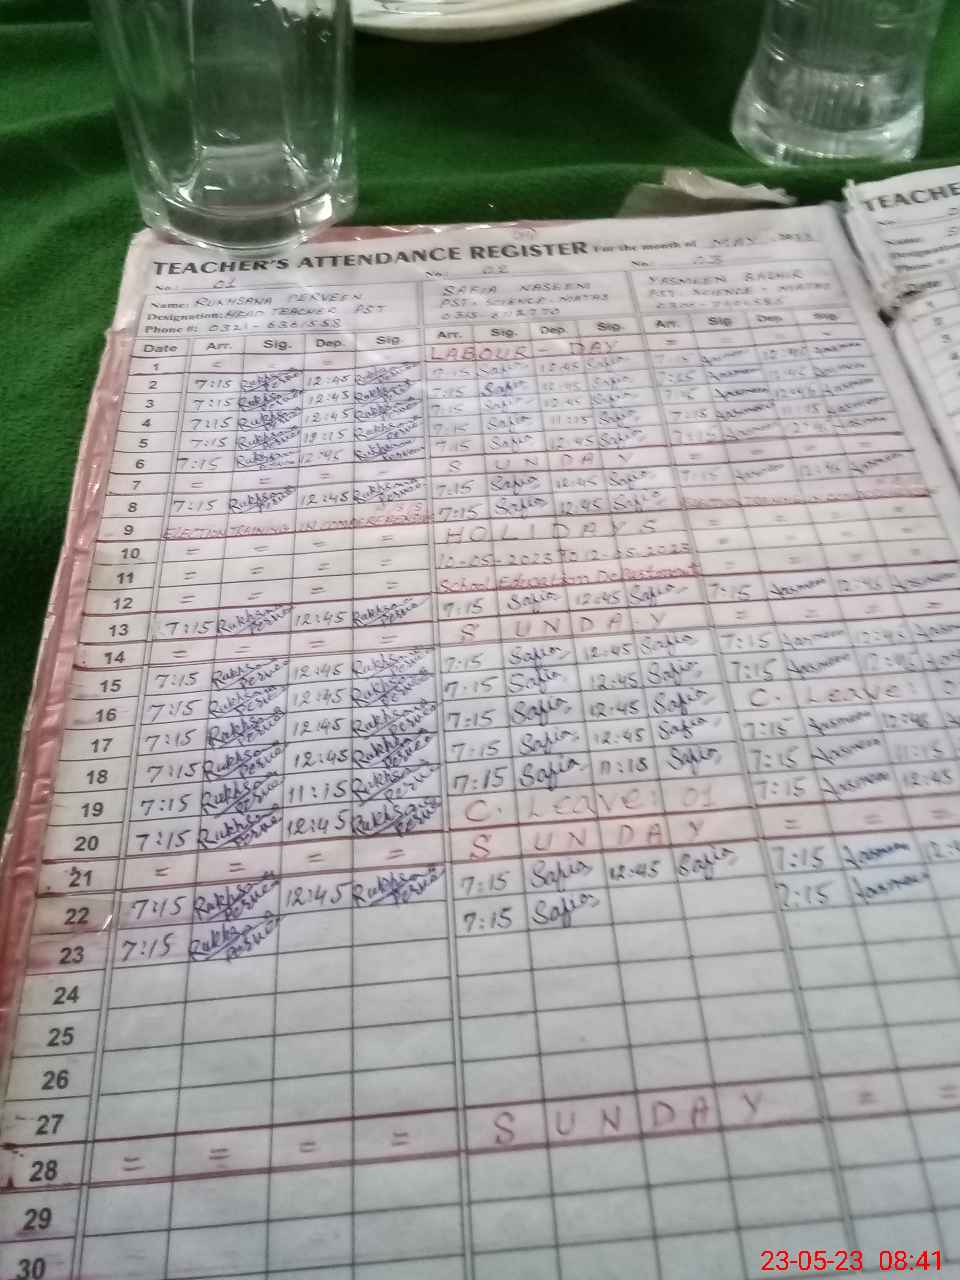 TEACHER'S ATTENDANCE REGISTER For the month of MAY
TEACHE
No.: 01 No: 02 No: 03
Name: RUKHSANA PERVEEN SAFIA NASEEM YASMEEN BASHIR
Designation: HEAD TEACHER PST PST-SCIENCE-MATHS PST-SCIENCE-MATHS
Phone #: 0321-6361558
Date Arr. Sig. Dep. Sig. Arr. Sig. Dep. Sig. Arr. Sig Dep. Sig
1 = = LABOUR - DAY =
2 7:15 Rukhsana Perveen 12:45 Rukhsana Perveen 7:15 Safia 12:45 Safia 7:15 Yasmeen 12:45 Yasmeen
3 7:15 Rukhsana Perveen 12:45 Rukhsana Perveen 7:15 Safia 12:45 Safia 7:15 Yasmeen 12:45 Yasmeen
4 7:15 Rukhsana Perveen 12:45 Rukhsana Perveen 7:15 Safia 12:45 Safia 7:15 Yasmeen 12:45 Yasmeen
5 7:15 Rukhsana Perveen Rukhsana Perveen 7:15 Safia 11:15 Safia 7:15 Yasmeen 11:15 Yasmeen
6 7:15 Rukhsana Perveen 12:45 Rukhsana Perveen 7:15 Safia 12:45 Safia 7:15 Yasmeen 12:45 Yasmeen
7 = = = = SUNDAY = = = =
8 7:15 Rukhsana Perveen 12:45 Rukhsana Perveen 7:15 Safia 12:45 Safia 7:15 Yasmeen 12:45 Yasmeen
9 ELECTION TRAINING IN 7:15 Safia 12:45 Safia
10 = = = = HOLIDAYS = = = =
11 = = = = 10-05-2023 TO 12-05-2023 = = = =
12 = = = = School Education Department = = = =
13 7:15 Rukhsana Perveen 12:45 Rukhsana Perveen 7:15 Safia 12:45 Safia 7:15 Yasmeen 12:45 Yasmeen
14 = = = = SUNDAY = = = =
15 7:15 Rukhsana Perveen 12:45 Rukhsana Perveen 7:15 Safia 12:45 Safia 7:15 Yasmeen 12:45 Yasmeen
16 7:15 Rukhsana Perveen 12:45 Rukhsana Perveen 7:15 Safia 12:45 Safia 7:15 Yasmeen 12:45
17 7:15 Rukhsana Perveen 12:45 Rukhsana Perveen 7:15 Safia 12:45 Safia C. Leave:
18 7:15 Rukhsana Perveen 12:45 Rukhsana Perveen 7:15 Safia 12:45 Safia 7:15 Yasmeen 12:45
19 7:15 Rukhsana Perveen 11:15 Rukhsana Perveen 7:15 Safia 11:15 Safia 7:15 Yasmeen 11:15
20 7:15 Rukhsana Perveen 12:45 Rukhsana Perveen C. Leave: 01 7:15 Yasmeen 12:45
21 = = = = SUNDAY = = =
22 7:15 Rukhsana Perveen 12:45 Rukhsana Perveen 7:15 Safia 12:45 Safia 7:15 Yasmeen
23 7:15 Rukhsana Perveen 7:15 Safia 7:15 Yasmeen
24
25
26
27
28 = = = = SUNDAY = =
29
30
23-05-23 08:41